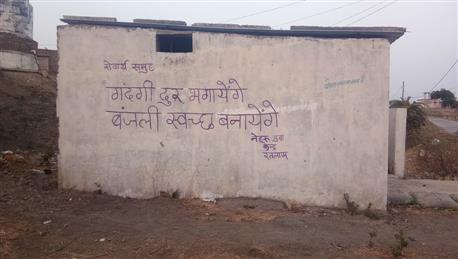 सेवार्थ समुह
गंदगी दूर भगायेंगे
बंजली स्वच्छ बनायेंगे
नेहरू युवा
केन्द्र
रतलाम